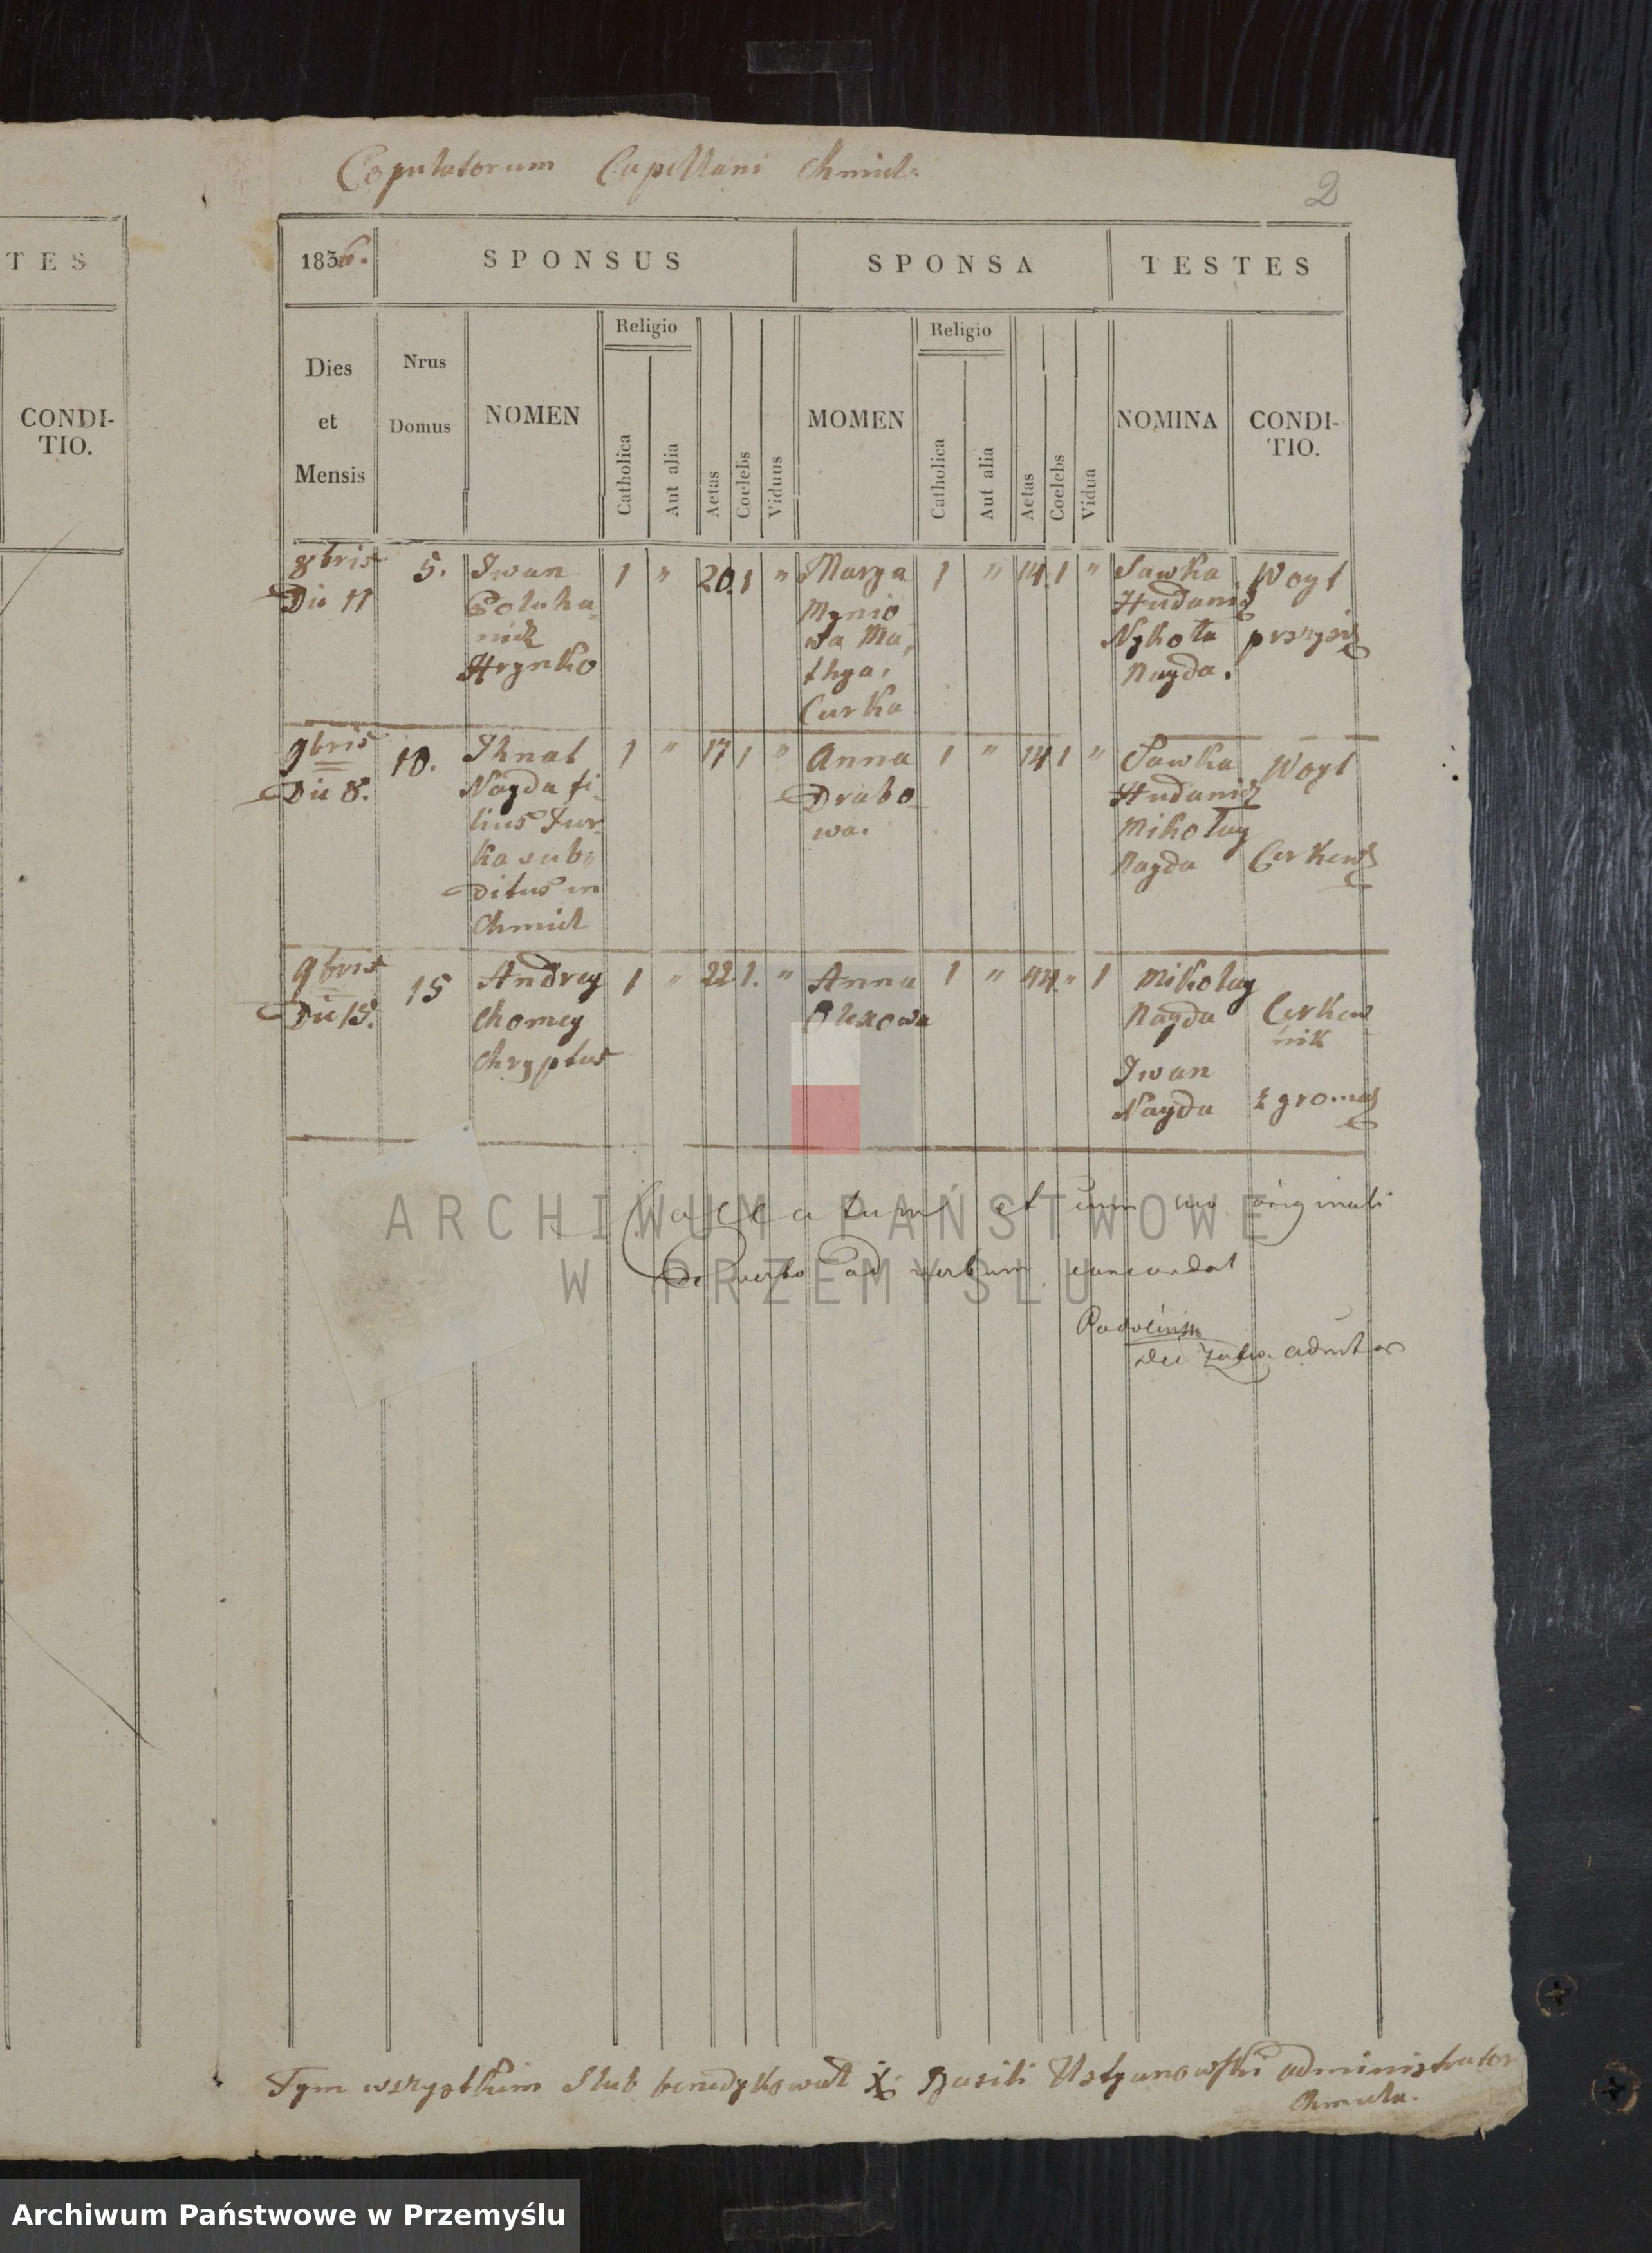 Copulatorum Capellani Chmiel:
2
TES
CONDI-
TIO.
1836.
SPONSUS
SPONSA
TESTES
Dies
et
Mensis
Nrus
Domus
NOMEN
Religio
Catholica
Aut alia
Aetas
Coelebs
Viduus
MOMEN
Religio
Catholica
Aut alia
Aetas
Coelebs
Vidua
NOMINA
CONDI-
TIO.
8bris
Die 11
5.
Iwan
Hrynko
1 " 20. 1 "
Marya
Mynio
wa Ma,
thya,
Curka
1 " 14. 1 "
Sawka
Hudanicz
Nykoła
Nayda.
Woyt
przysież
9bris
Die 8.
10.
Ihnat
Nayda fi,
lius Jur
ka sub,
ditus in
Chmiel
1 " 17 1 "
Anna
Drabo
wa.
1 " 14 1 "
Sawka
Hudanicz
Mikołay
Nayda
Woyt
Cerkew
9bris
Die 15.
15
Andrey
Chomey
Chryptus
1 " 22 1. "
Anna
Olexowa
1 " 44. " 1
Mikolay
Nayda
Iwan
Nayda
Cerkew
nik
z gromad
Collatum et cum suo originali
de verbo ad verbum concordat
ARCHIWUM PAŃSTWOWE
W PRZEMYŚLU
Tym wszystkim Slub benedykowal X: Basili Ustyanowski administrator
Chmiela.
Archiwum Państwowe w Przemyślu